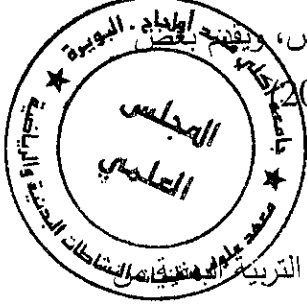 س، ويفهم بعض
20
جامعة أكلي محند أولحاج . البويرة
المجلس
العلمي
معهد علوم وتقنيات النشاطات البدنية والرياضية
التربية البدنية من